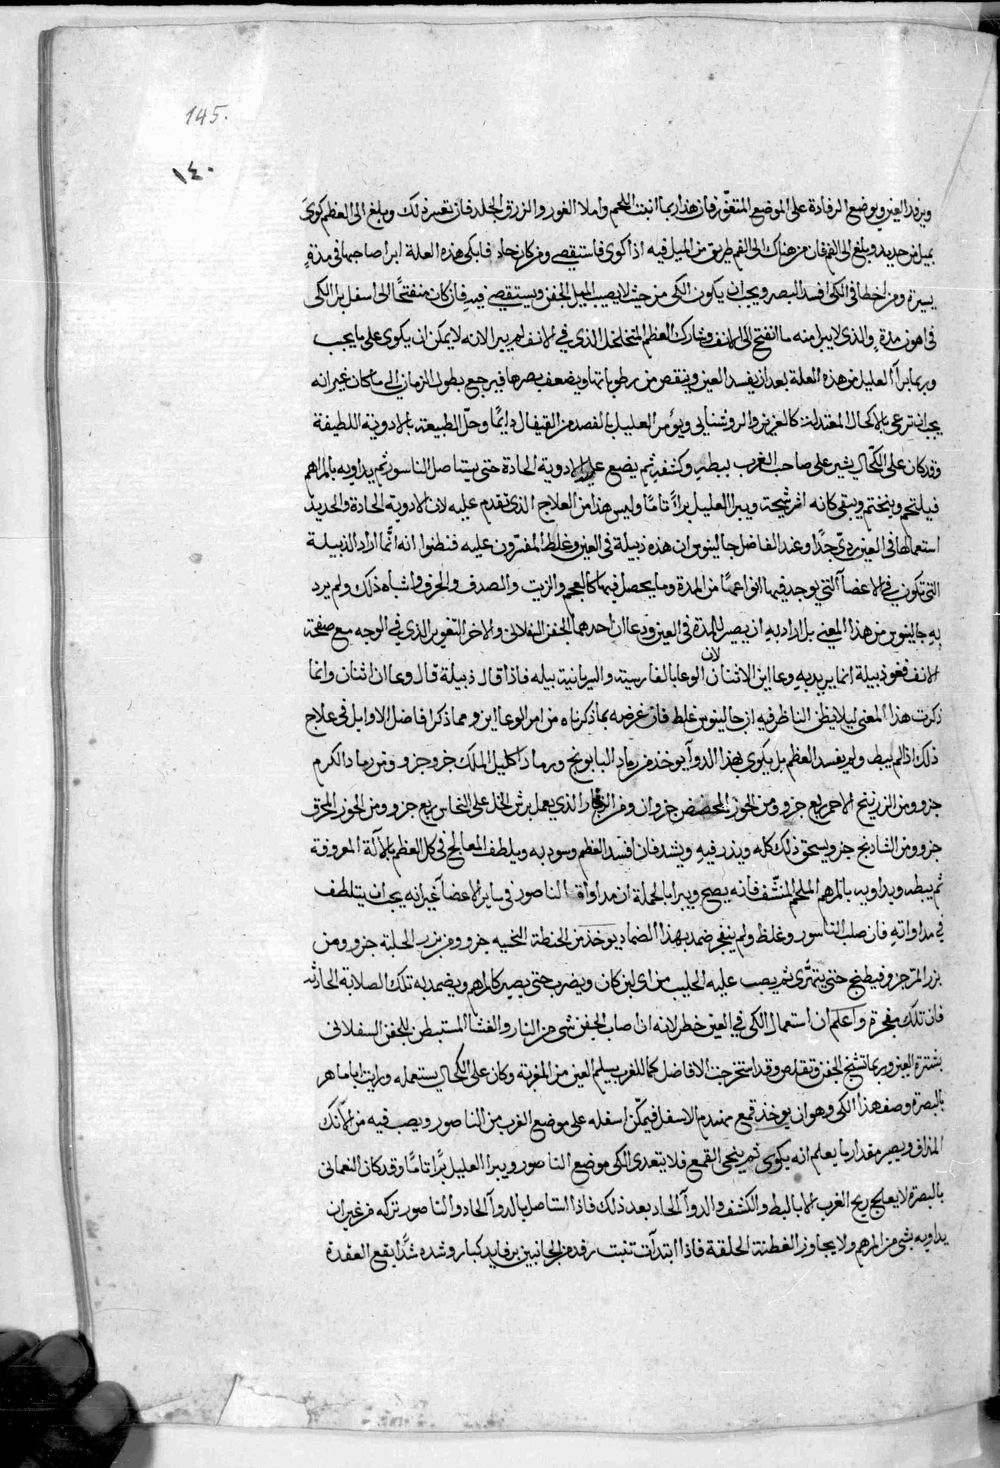 145.
١٤٠
ويرفد العين ويوضع الرفادة على الموضع المتغور فان هذا ربما انبت اللحم واملا الغور والزرق الجلد فان تعسر ذلك وبلغ الى العظم كوى
بميل من حديد ويبلغ الى الفم فان من هناك الى الفم طريق من الميل فيه اذا كوى فاستقصى ومن كان حاد فابكى هذه العلة ابرا صاحبها في مدة
يسيرة ومن اخطا في الكى افسد البصر ويجب ان يكون الكى من حيث لا يصيب الميل الجفن ويستقصى فيه فان كان منفتحًا الى اسفل برا الكى
في اهون مدة والذى لا يبرا منه ما انفتح الى الانف وشارك العظم المتخلخل الذي في الانف لم يبرا لانه لا يمكن ان يكوى على ما يجب
وربما برأ العليل من هذه العلة بعد ان يفسد العين وينقص من رطوباتها ويضعف بصرها فيرجع بطول الزمان الى ما كان غير انه
يجب ان ترعى بالاكحال المعتدلة كالعزيزى والروشنايى ويؤمر العليل بالفصد من القيفال دايمًا وحل الطبيعة بالادوية اللطيفة
وقد كان على الكحال يشير على صاحب الغرب ببطه وكشفه ثم يضع عليه الادوية الحادة حتى يستاصل الناسور ثم يداويه بالمراهم
فيلتحم وينختم ويبقى كانه اثر شجة ويبرا العليل براً تامًا وليس هذا من العلاج الذى نقدم عليه لان الادوية الحادة والحديد
استعمالها في العين ردى جدًا وعند الفاضل جالينوس ان هذه ذبيلة في العين وغلط المفسرون عليه فظنوا انه انما اراد الذبيلة
التى تكون في الاعضآ التي يوجد فيها انواعًا من المدة وما يحصل فيها كالعجم والزيت والصدف والخرف واشباه ذلك ولم يرد
به جالينوس من هذا المعنى بل اراد به ان يصير للمدة في العين وعاان احدهما الجفن السفلانى والاخر التغوير الذي في الوجه مع صفحة
الانف فقوله ذبيلة انما يريد به وعااين الاثنان لان الوعا بالفارسية والسريانية بيله فاذا قال ذبيلة قال وعاان اثنان وانما
ذكرت هذا المعنى ليلا يظن الناظر فيه ان جالينوس غلط فان غرضه بما ذكرناه من امر الوعااين ومما ذكرا فاضل الاوايل في علاج
ذلك اذا لم يبط ولم يفسد العظم بل يكوى بهذا الدوآ يوخذ من رماد البابونج ورماد اكليل الملك جزو جزو ومن رماد الكرم
جزو ومن الزرنيخ الاحمر ربع جزو ومن الجوز المحضض جزوان ومن الزنجار الذي يعمل برش الخل على النحاس ربع جزو ومن الجوز المحرق
جزو ومن الشادنج جزو ويسحق ذلك كله ويذر فيه ويشد فان افسد العظم وسود به ويلطف المعالج في كل العظم بالآلة المعروفة
ثم يبطه ويداويه بالمرهم الملحم المنشف فانه يصح ويبرا بالجملة ان مداواة الناصور في ساير الاعضا غير انه يجب ان يتلطف
في مداواته فان صلب الناسور وغلظ ولم ينفجر ضمد بهذا الضماد يوخذ من الحنطة النخسيه جزو ومن بزر الحلبة جزو ومن
بزر المر جزو فيطبخ حتى يتهرى ثم يصب عليه الحليب من اى لبن كان ويضرب حتى يصير كالمرهم ويضمد به تلك الصلابة الحادثه
فان تلك يفجره واعلم ان استعمال الكى في العين خطر لانه اذا صاب الجفن شى من النار والغشا المستبطن للجفن السفلانى
بشترة العين وربما تشنج الجفن وتقلص وقد استخرجت الافاضل كما للغرب يسلم العين من المغربه وكان على الكحال يستعمله ورايت اباماهر
بالبصرة وصف هذا الكى وهو ان يوخذ قمع مهندم الاسفل فيمكن اسفله على موضع الغرب من الناصور ويصب فيه من الآنك
المذاق ويصير مقدار ما يعلم انه يكوى ثم ينحى القمع فلا يتعدى الكى موضع الناصور ويبرا العليل برًا تامًا وقد كان النعمانى
بالبصرة لا يعالج ريح الغرب الا بالبط والكشف والدوآ الحاد بعد ذلك فاذا استاصل بالدوآ الحاد والناصور تركه من غير ان
يداويه بشى من المرهم ولا يجاوز القطنة الخلقة فاذا ابتدآت تنبت رفد من الجانبين برفايد كبار وشده شدًا يقع العقدة